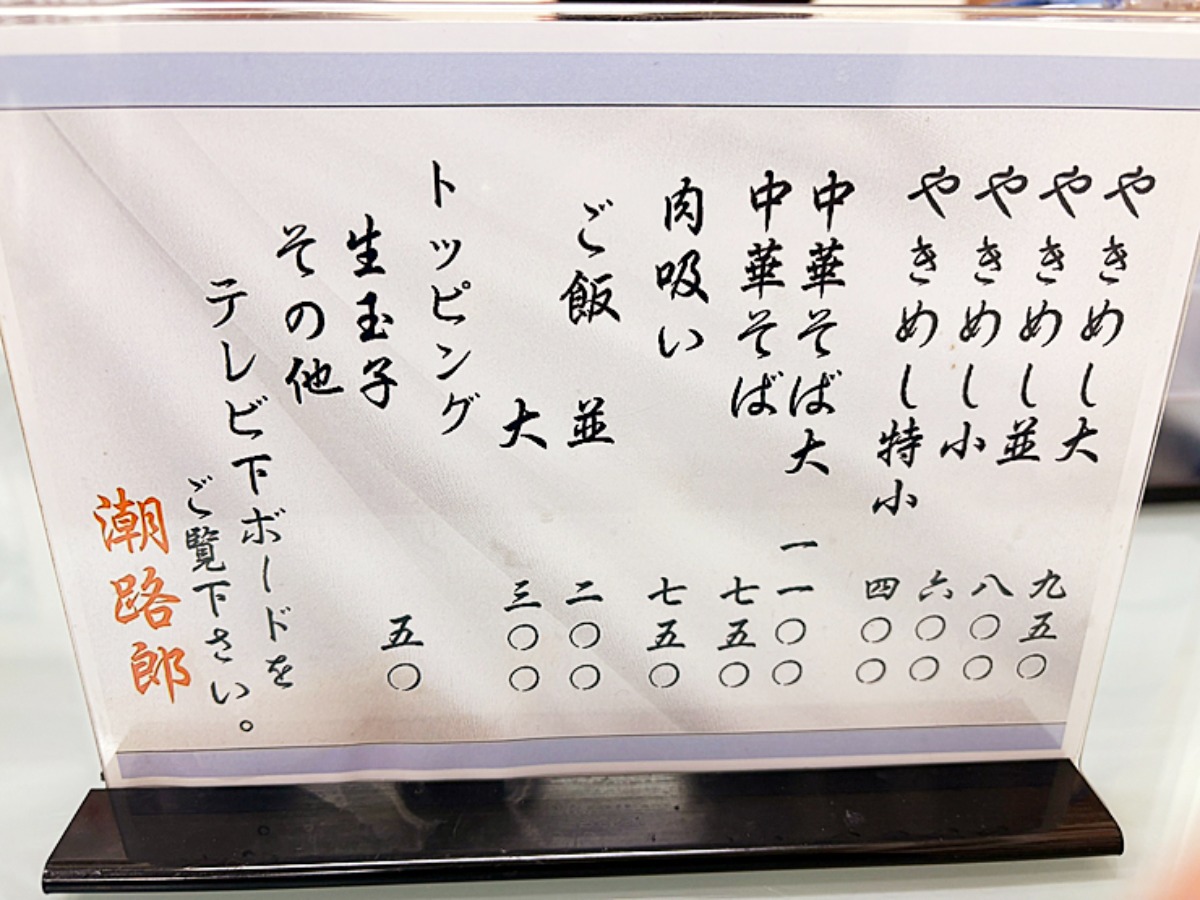 やきめし大 九五〇
やきめし並 八〇〇
やきめし小 六〇〇
やきめし特小 四〇〇
中華そば大 一一〇〇
中華そば 七五〇
肉吸い 七五〇
ご飯 並 二〇〇
大 三〇〇
トッピング
生玉子 五〇
その他
テレビ下ボードを
ご覧下さい。
潮路郎